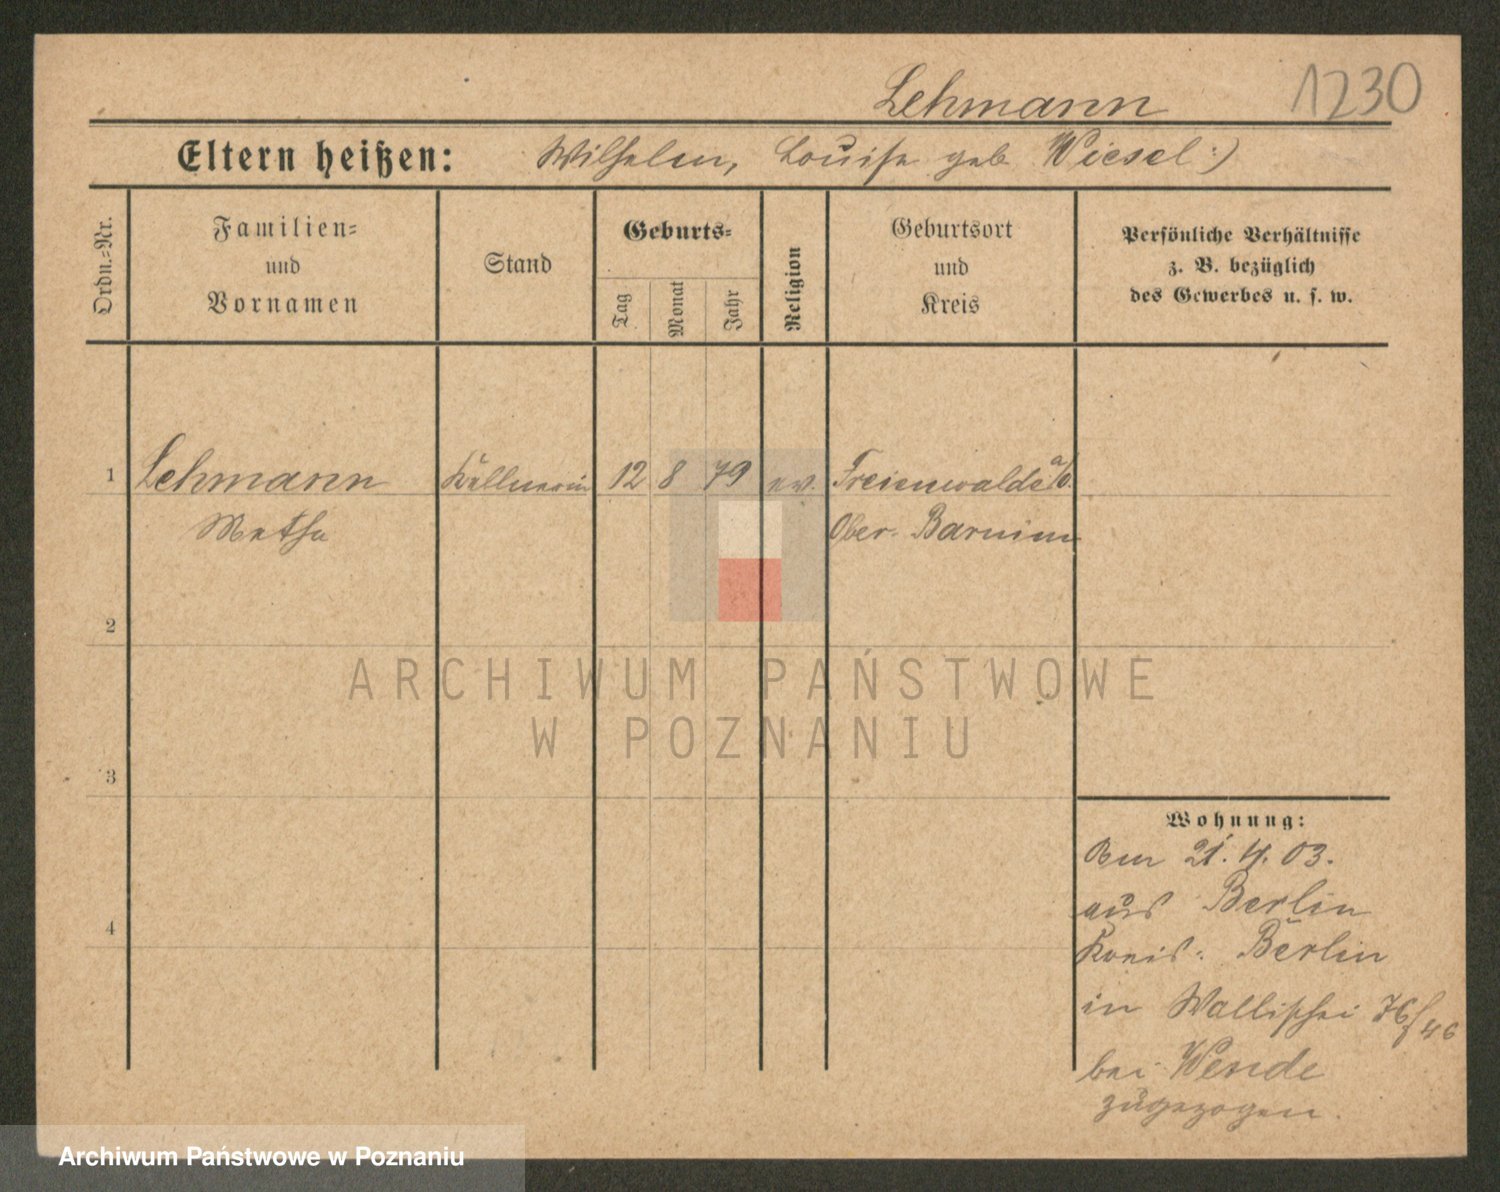 Lehmann 1230
Eltern heißen: Wilhelm, Louise geb Wiesel :)
Ordn.=Nr.
Familien=
und
Vornamen
Stand
Geburts=
Tag
Monat
Jahr
Religion
Geburtsort
und
Kreis
Persönliche Verhältnisse
z. B. bezüglich
des Gewerbes u. s. w.
1 Lehmann Kellnerin 12 8 79 ev. Freienwalde a/O.
Metha Ober-Barnim
2
3
4
Wohnung:
Am 21. 4. 03.
aus Berlin
Kreis: Berlin
in Wallischei 76/46
bei Wende
zugezogen.
ARCHIWUM PAŃSTWOWE
W POZNANIU
Archiwum Państwowe w Poznaniu